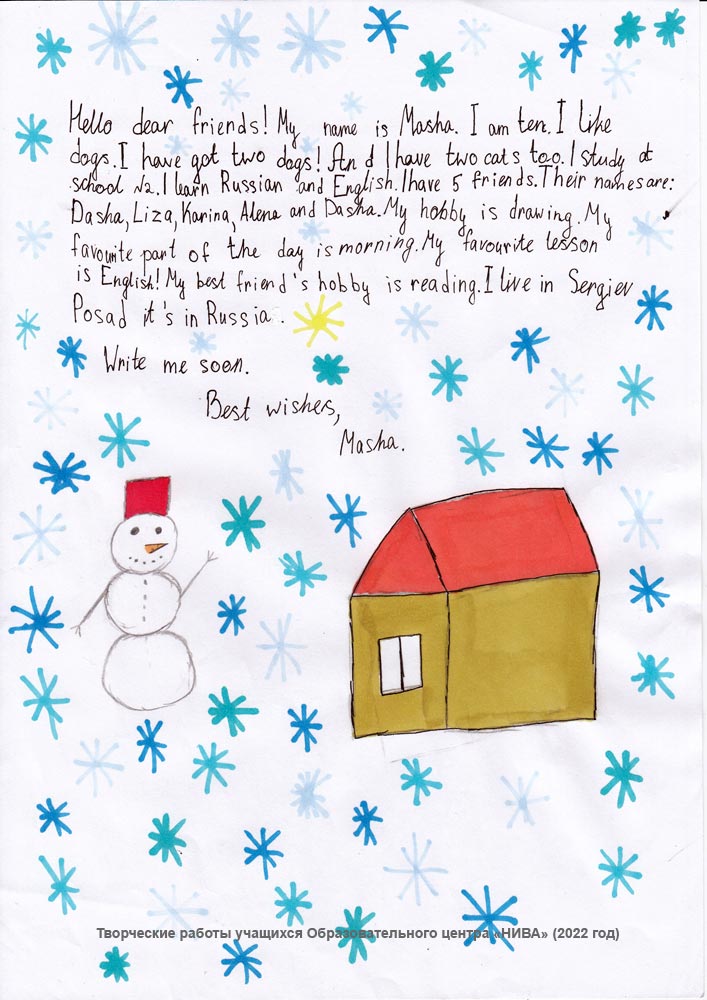 Hello dear friends! My name is Masha. I am ten. I like
dogs. I have got two dogs! And I have two cats too. I study at
school №2. I learn Russian and English. I have 5 friends. Their names are:
Dasha, Liza, Karina, Alena and Dasha. My hobby is drawing. My
favourite part of the day is morning. My favourite lesson
is English! My best friend's hobby is reading. I live in Sergiev
Posad it's in Russia.
Write me soon.
Best wishes,
Masha.
Творческие работы учащихся Образовательного центра «НИВА» (2022 год)